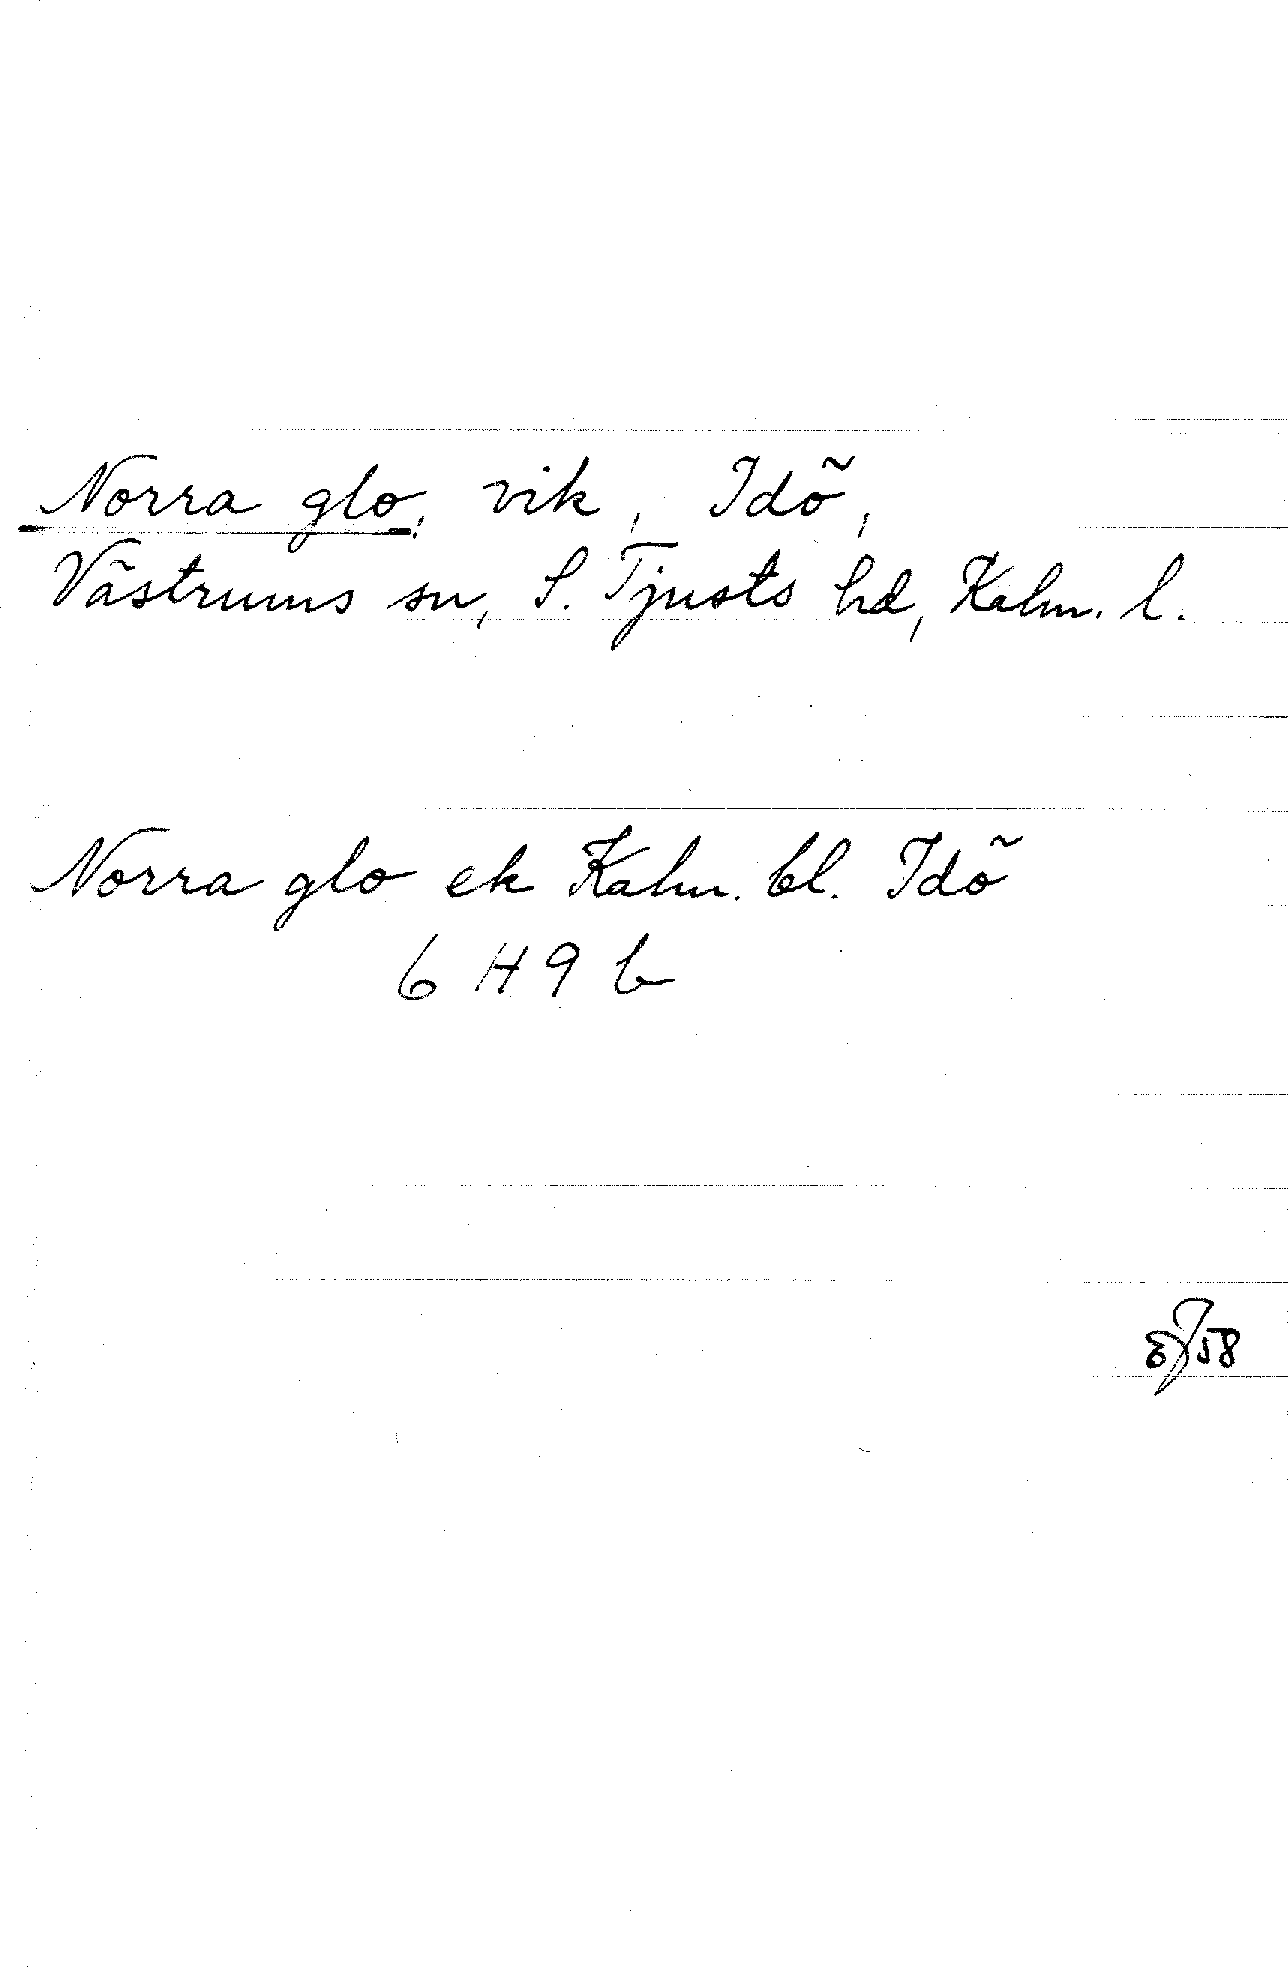 Norra glo, vik, Idö,
Västrums sn, S. Tjusts hd, Kalm. l.
Norra glo ek Kalm. bl. Idö
6 H 9 b